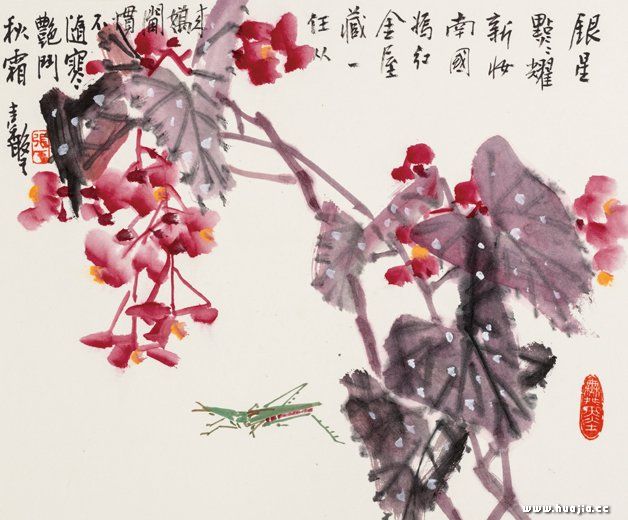 銀星
點々耀
新妝
南國
嫣紅
金屋
藏一
任从
嬌
慣
不
隨寒
艷鬥
秋霜
www.huajia.cc